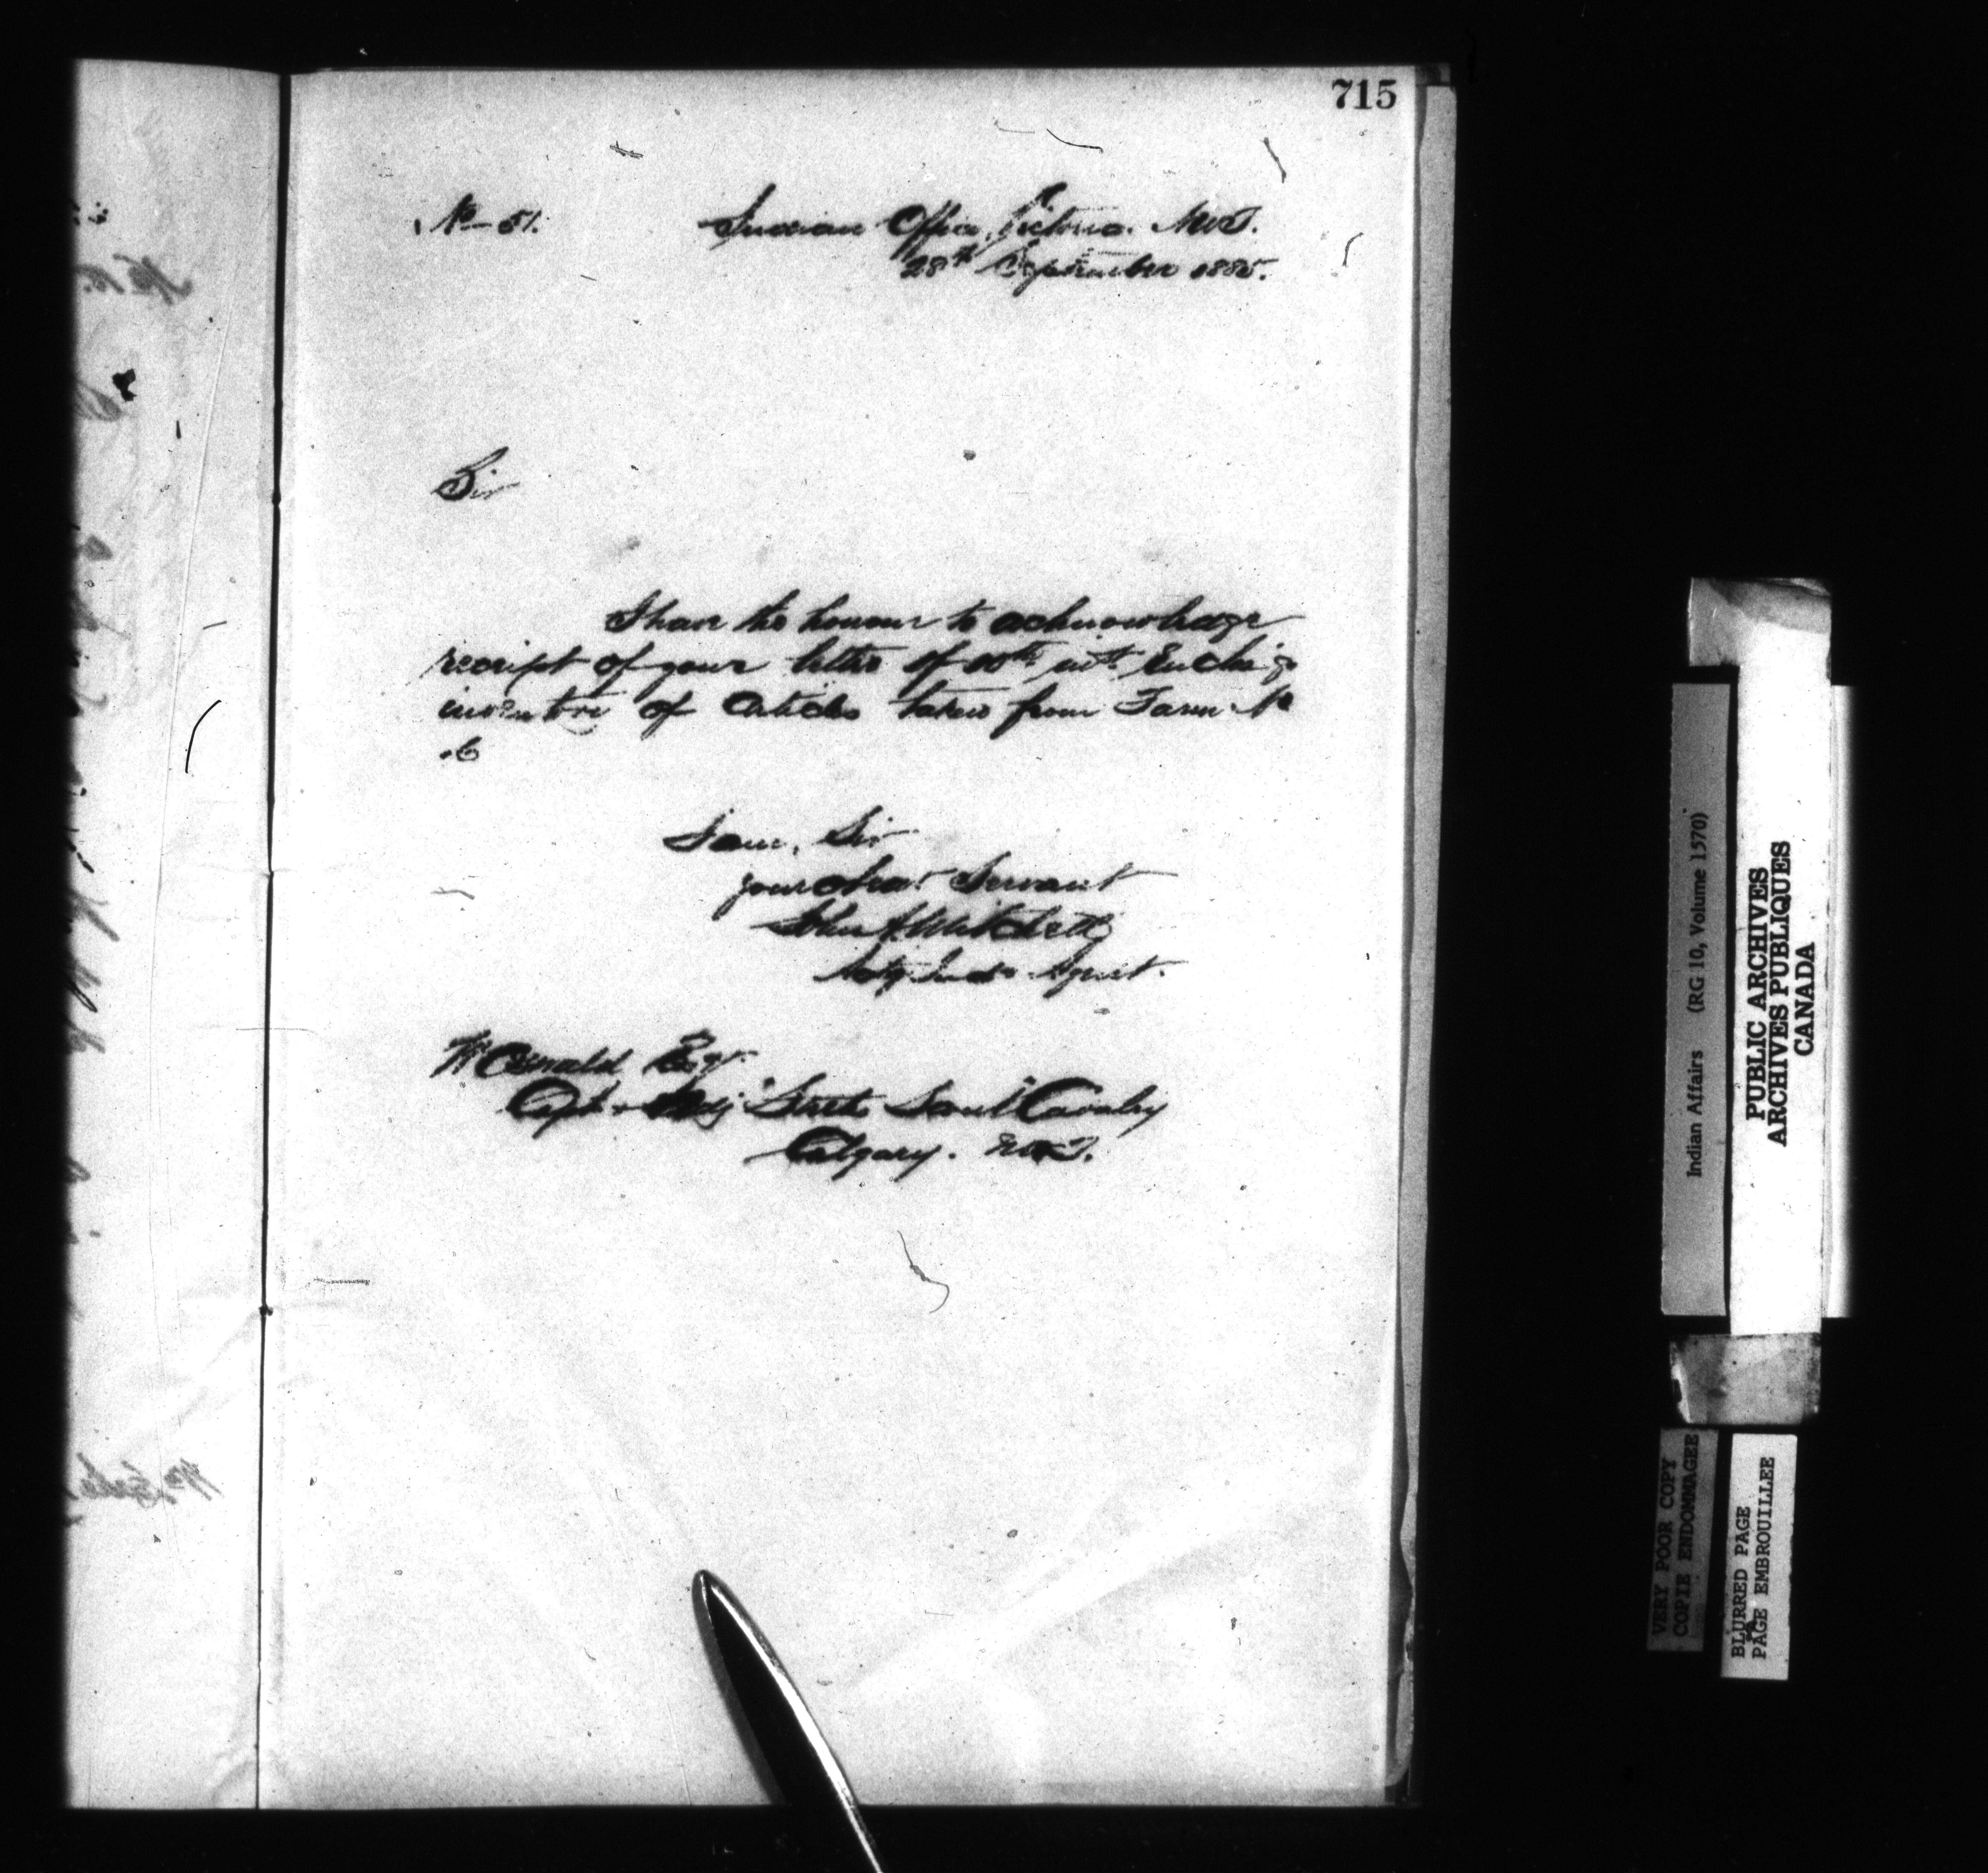 715
No 51. Indian Office, Victoria. N.W.T.
28th September 1885.
Sir
I have the honour to acknowledge
receipt of your letter of inst. Encl'g
inventory of Articles taken from Farm No
6
I am, Sir
your obedt Servant
John A. Mitchell
Actg Indn Agent.
W Oswald Esqr
Capt & Adj "Steele's Scouts" Cavalry
Calgary. N.W.T.
Indian Affairs (RG 10, Volume 1570)
PUBLIC ARCHIVES
ARCHIVES PUBLIQUES
CANADA
VERY POOR COPY
COPIE ENDOMMAGEE
BLURRED PAGE
PAGE EMBROUILLEE